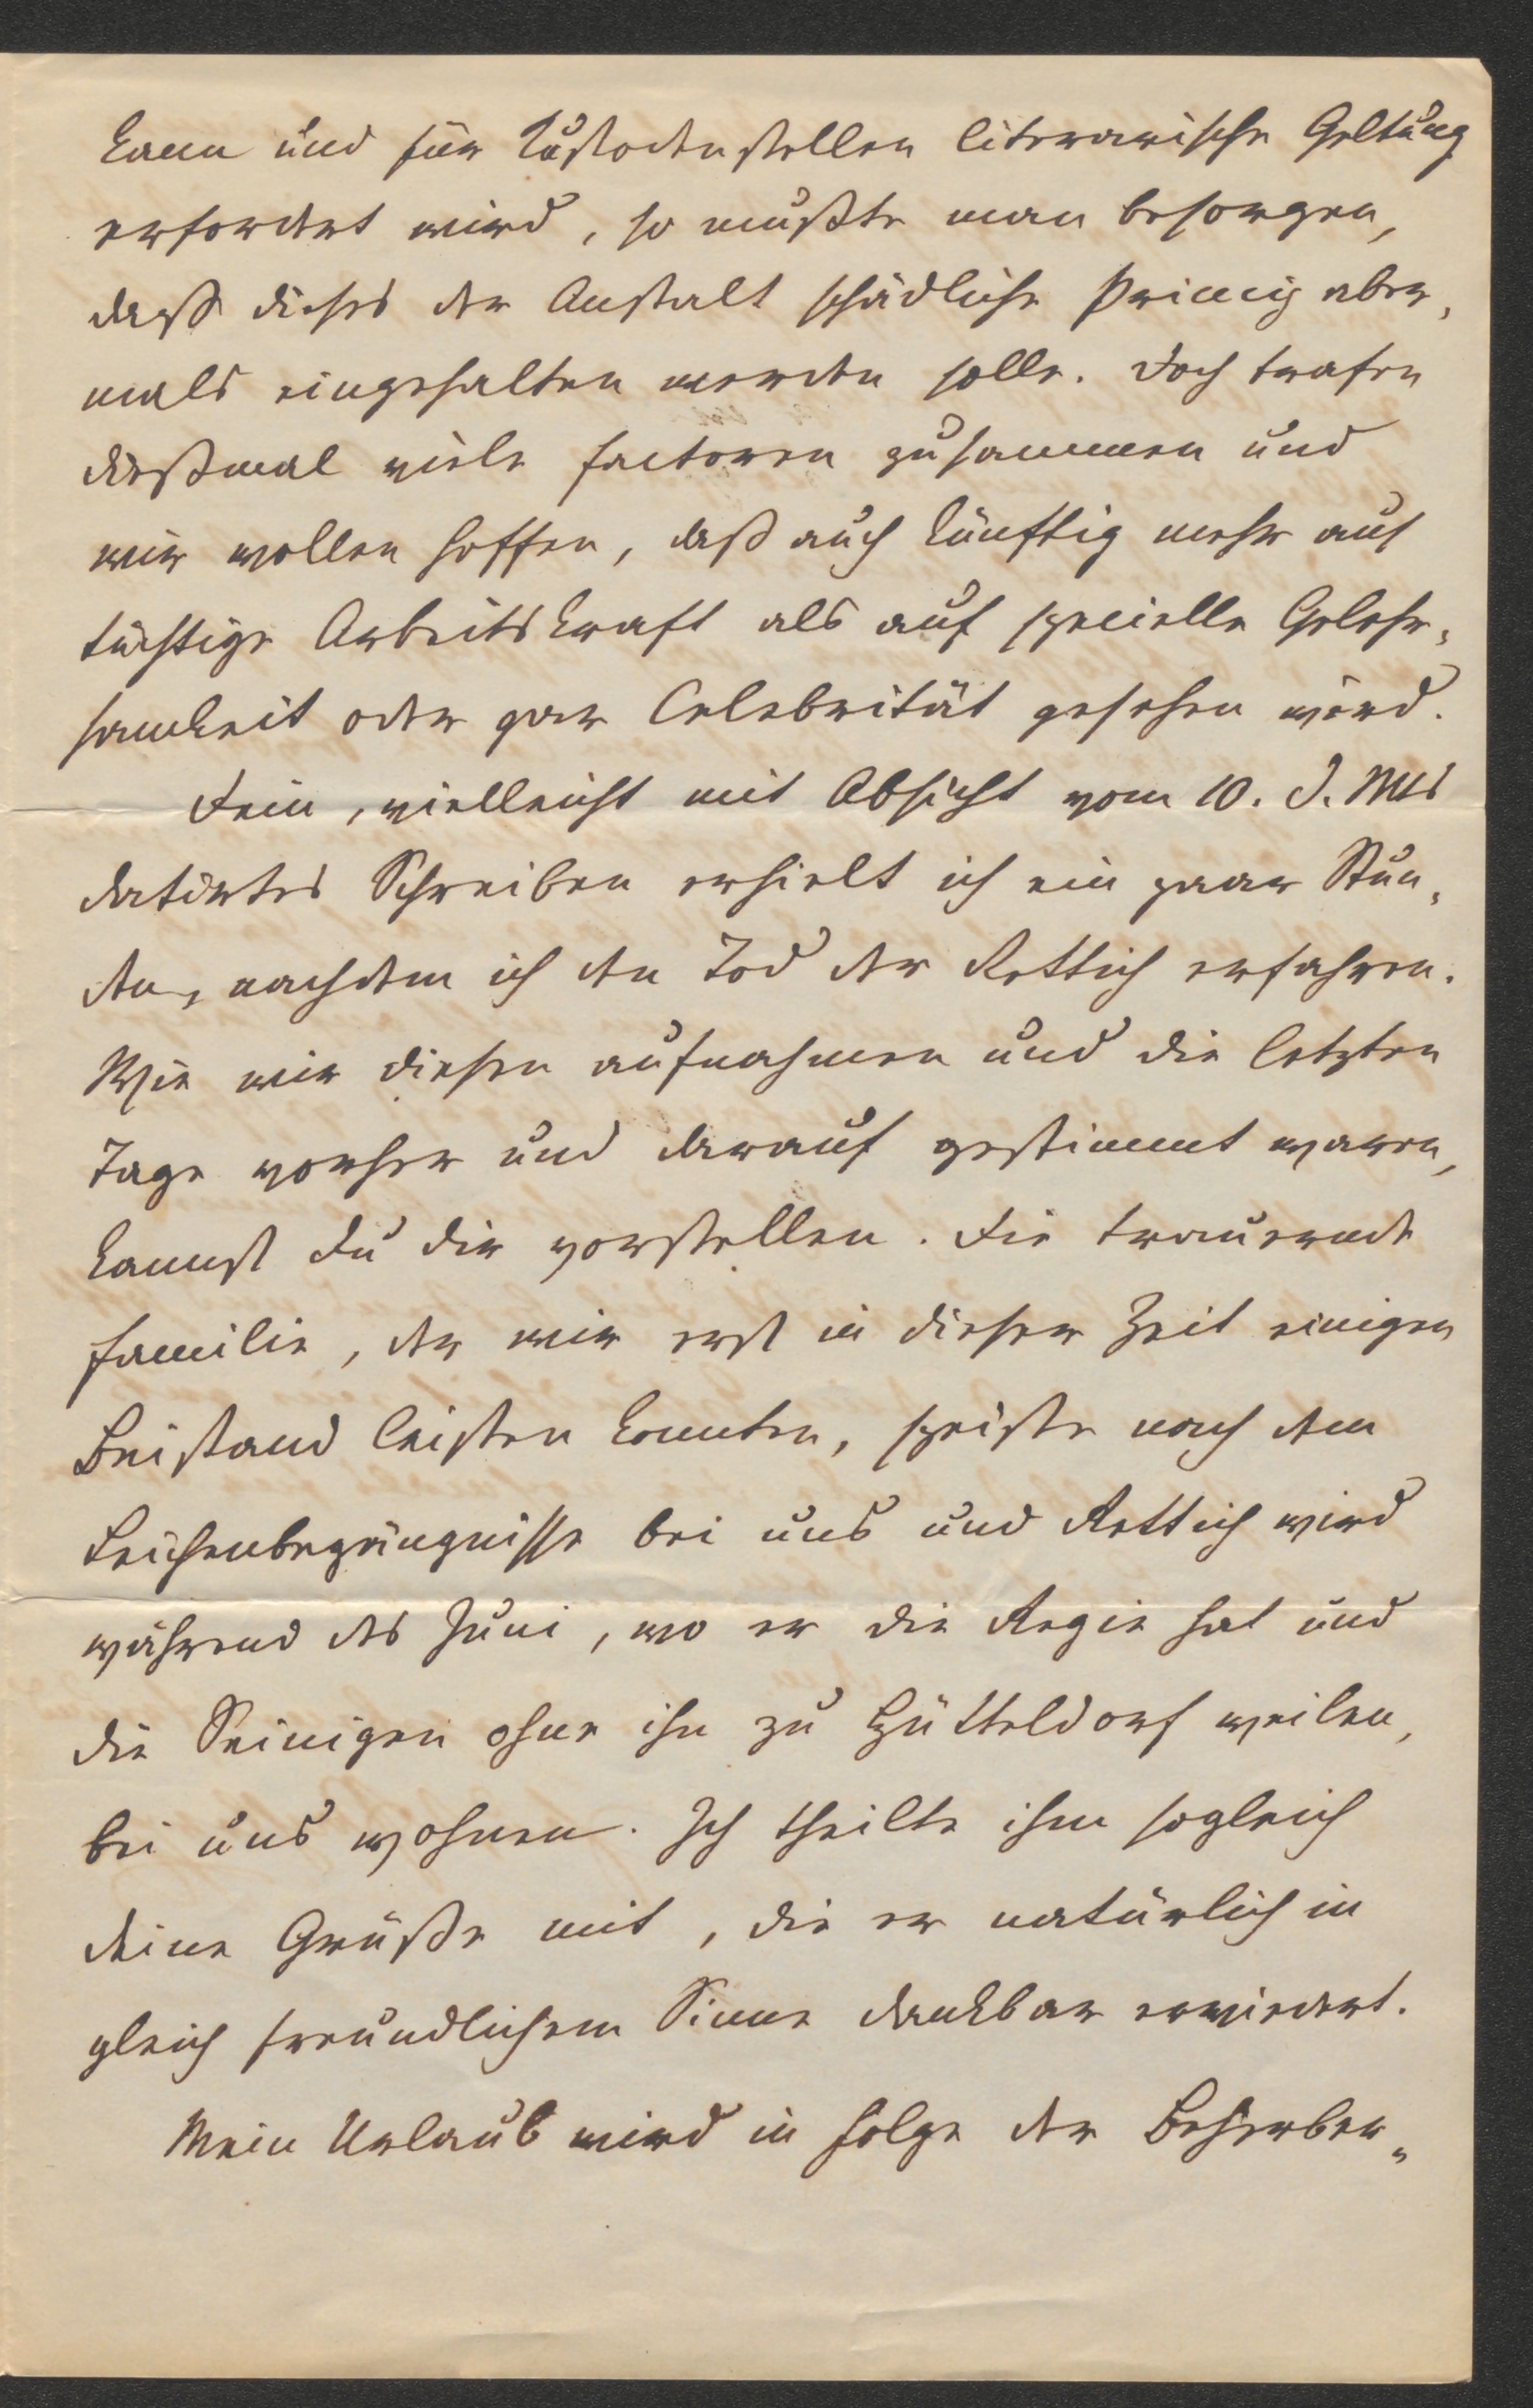 kann und für Kustodenstellen literarische Geltung
erfordert wird, so mußte man besorgen,
daß dieses der Anstalt schädliche Princip aber-
mals eingehalten werden solle. Doch trafen
dießmal viele Factoren zusammen und
wir wollen hoffen, daß auch künftig mehr auf
tüchtige Arbeitskraft als auf specielle Gelehr-
samkeit oder gar Celebrität gesehen wird.
Dein, vielleicht mit Absicht vom 10. d. Mts
datirtes Schreiben erhielt ich ein paar Stun-
den, nachdem ich den Tod der Rettich erfahren.
Wie wir diesen aufnahmen und die letzten
Tage vorher und darauf gestimmt waren,
kannst Du dir vorstellen. Die trauernde
Familie, der wir erst in dieser Zeit einigen
Beistand leisten konnten, speiste nach dem
Leichenbegängnisse bei uns und Rettich wird
während des Juni, wo er die Regie hat und
die Seinigen ohne ihn zu Hütteldorf weilen,
bei uns wohnen. Ich theilte ihm sogleich
deine Grüße mit, die er natürlich in
gleich freundlichem Sinne dankbar erwiedert.
Mein Urlaub wird in Folge der